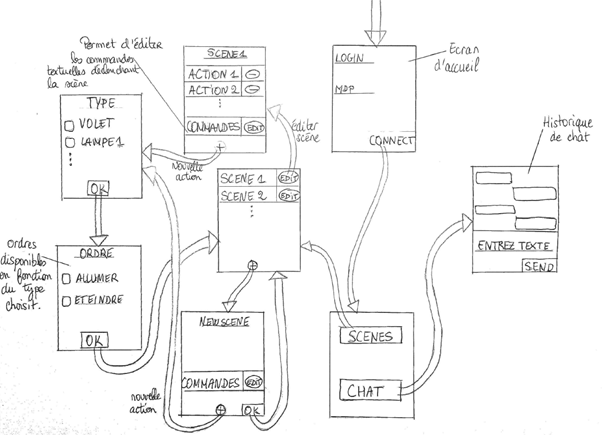 Permet d'éditer
les commandes
textuelles déclenchant
la scène
SCENE 1
ACTION 1
ACTION 2
COMMANDES EDIT
+
Nouvelle
action
LOGIN
MDP
CONNECT
Ecran
d'accueil
TYPE
VOLET
LAMPE 1
OK
Editer
scène
SCENE 1 EDIT
SCENE 2 EDIT
+
Historique
de chat
ENTREZ TEXTE
SEND
Ordres
disponibles
en fonction
du type
choisit.
ORDRE
ALLUMER
ETEINDRE
OK
NEW SCENE
COMMANDES EDIT
+ OK
nouvelle
action
SCENES
CHAT